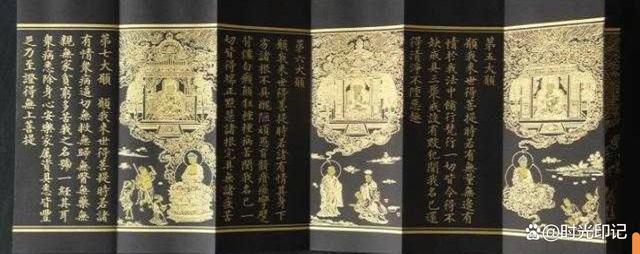 第五大願
願我来世得菩提時若有無量無邊有
情於我法中修行梵行一切皆令得不
缺戒具三聚戒設有毀犯聞我名已還
得清淨不墮惡趣
第六大願
願我来世得菩提時若諸有情其身下
劣諸根不具醜陋頑愚盲聾瘖瘂攣躄
背僂白癩癲狂種種病苦聞我名已一
切皆得端正黠慧諸根完具無諸疾苦
第七大願 願我来世得菩提時若諸
有情衆病逼切無救無歸無醫無藥無
親無家貧窮多苦我之名號一經其耳
衆病悉除身心安樂家属資具悉皆豐
足乃至證得無上菩提
时光印记